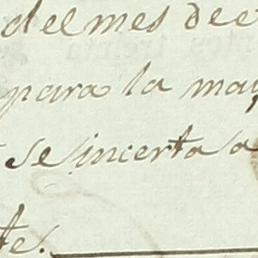 del mes de e
para la ma
se incerta a
te.